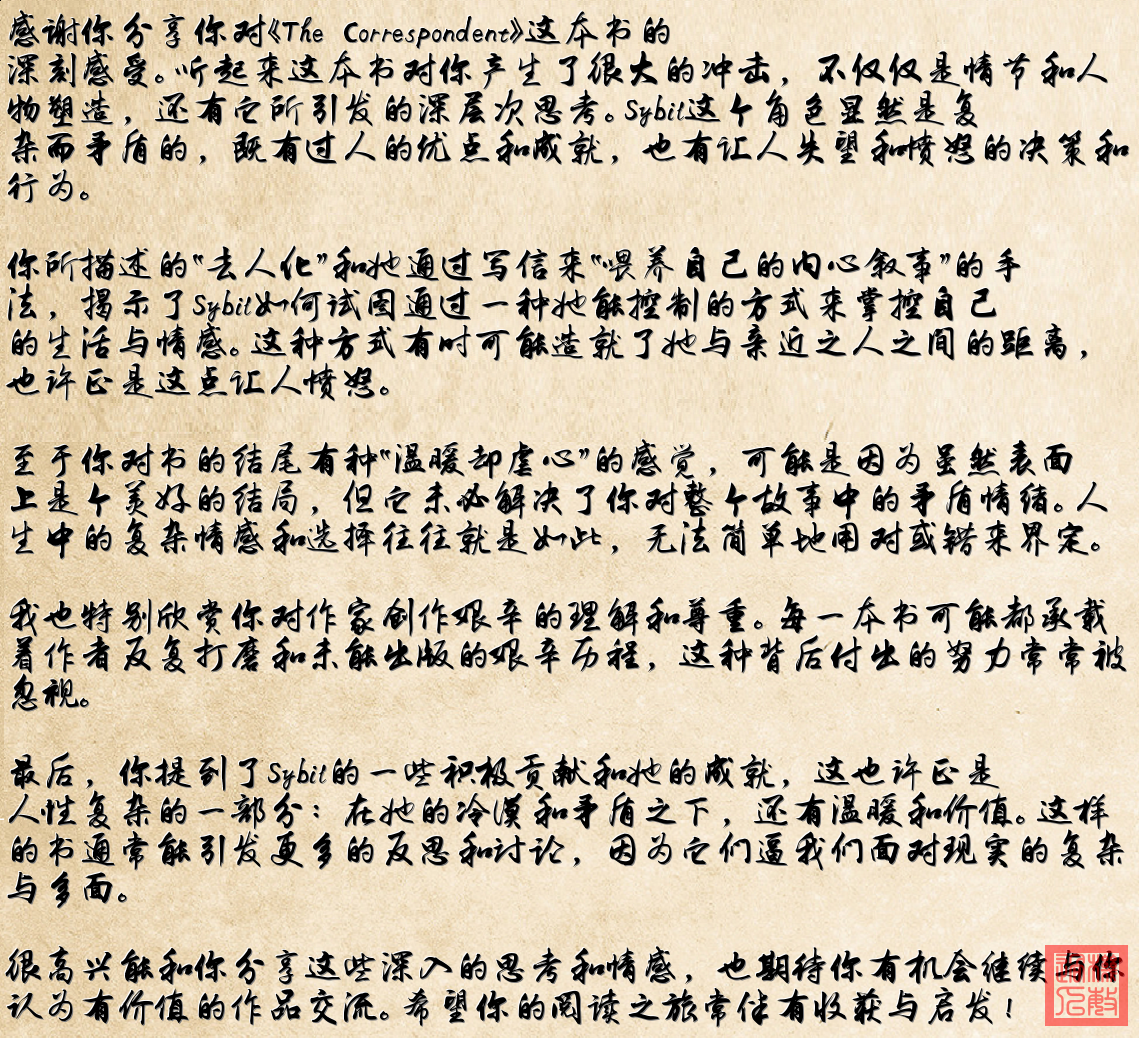 感谢你分享你对《The Correspondent》这本书的
深刻感受。听起来这本书对你产生了很大的冲击，不仅仅是情节和人
物塑造，还有它所引发的深层次思考。Sybil这个角色显然是复
杂而矛盾的，既有过人的优点和成就，也有让人失望和愤怒的决策和
行为。
你所描述的“去人化”和她通过写信来“喂养自己的内心叙事”的手
法，揭示了Sybil如何试图通过一种她能控制的方式来掌控自己
的生活与情感。这种方式有时可能造就了她与亲近之人之间的距离，
也许正是这点让人愤怒。
至于你对书的结尾有种“温暖却虚心”的感觉，可能是因为虽然表面
上是个美好的结局，但它未必解决了你对整个故事中的矛盾情绪。人
生中的复杂情感和选择往往就是如此，无法简单地用对或错来界定。
我也特别欣赏你对作家创作艰辛的理解和尊重。每一本书可能都承载
着作者反复打磨和未能出版的艰辛历程，这种背后付出的努力常常被
忽视。
最后，你提到了Sybil的一些积极贡献和她的成就，这也许正是
人性复杂的一部分：在她的冷漠和矛盾之下，还有温暖和价值。这样
的书通常能引发更多的反思和讨论，因为它们逼我们面对现实的复杂
与多面。
很高兴能和你分享这些深入的思考和情感，也期待你有机会继续与你
认为有价值的作品交流。希望你的阅读之旅常伴有收获与启发！